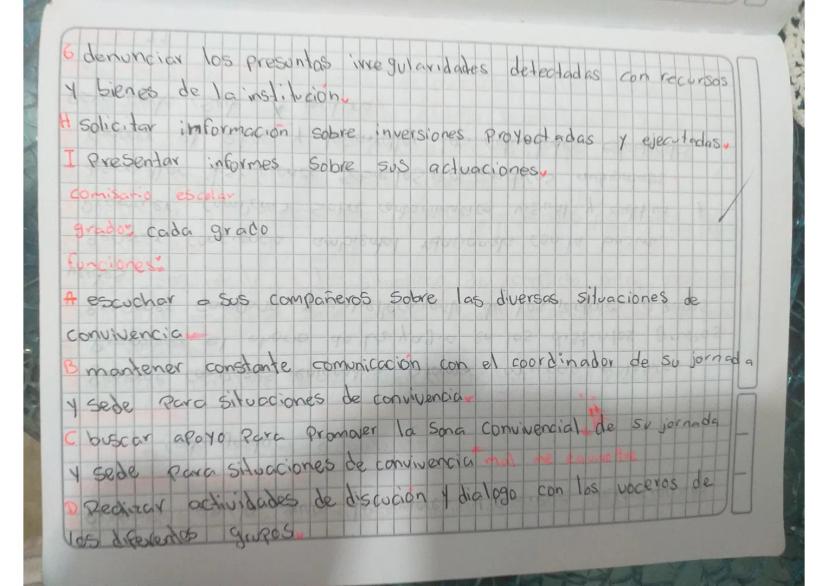 G denunciar los presuntos irregularidades detectadas con recursos
y bienes de la institución.
H solicitar información sobre inversiones proyectadas y ejecutadas.
I Presentar informes sobre sus actuaciones.
comisario escolar
grado: cada grado
funciones:
A escuchar a sus compañeros sobre las diversas situaciones de
convivencia
B mantener constante comunicación con el coordinador de su jornada
y sede para situaciones de convivencia
C buscar apoyo para promover la sana convivencial de su jornada
y sede para situaciones de convivencia
D Realizar actividades de discución y dialogo con los voceros de
los diferentes grupos.